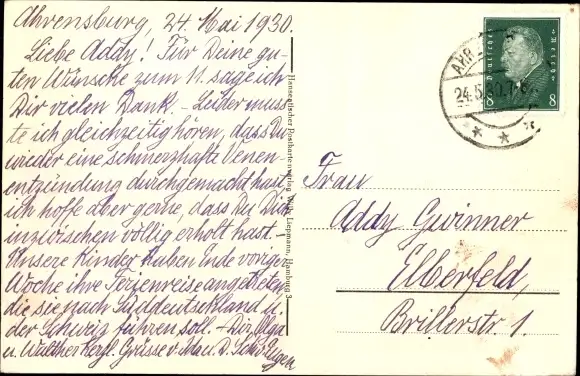 Ahrensburg, 24. Mai 1930.
Liebe Addy! Für Deine gu-
ten Wünsche zum 11. sage ich
Dir vielen Dank. - Leider muss-
te ich gleichzeitig hören, dass Du
wieder eine schmerzhafte Venen-
entzündung durchgemacht hast,
ich hoffe aber gerne, dass Du Dich
inzwischen völlig erholt hast. -
Unsere Kinder haben Ende voriger
Woche ihre Ferienreise angetreten,
die sie nach Süddeutschland u.
der Schweiz führen soll. - Dir, Olga
u. Walther herzl. Grüsse v. Mau. D.
Eugen
Hanseatischer Postkartenverlag Willy Liepmann, Hamburg 3
Deutsches Reich
8 8
AHR
24.5.30.7-8
Frau
Addy Gwinner
Elberfeld,
Brillerstr. 1.